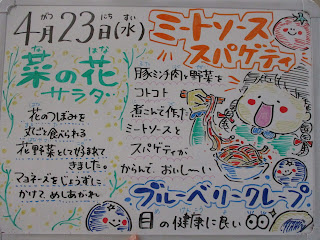 4月23日(水)
がつ にち すい
なのはな
菜の花
サラダ
花のつぼみを
丸ごと食べられる
花野菜として好まれて
きました。
マヨネーズをじょうずに
かけて めしあがれ
ミートソース
スパゲティ
豚ミンチ肉と野菜を
コトコト
煮こんで作った
ミートソースと
スパゲティが
からんで、おいしーい
ブルーベリークレープ
目の健康に良い